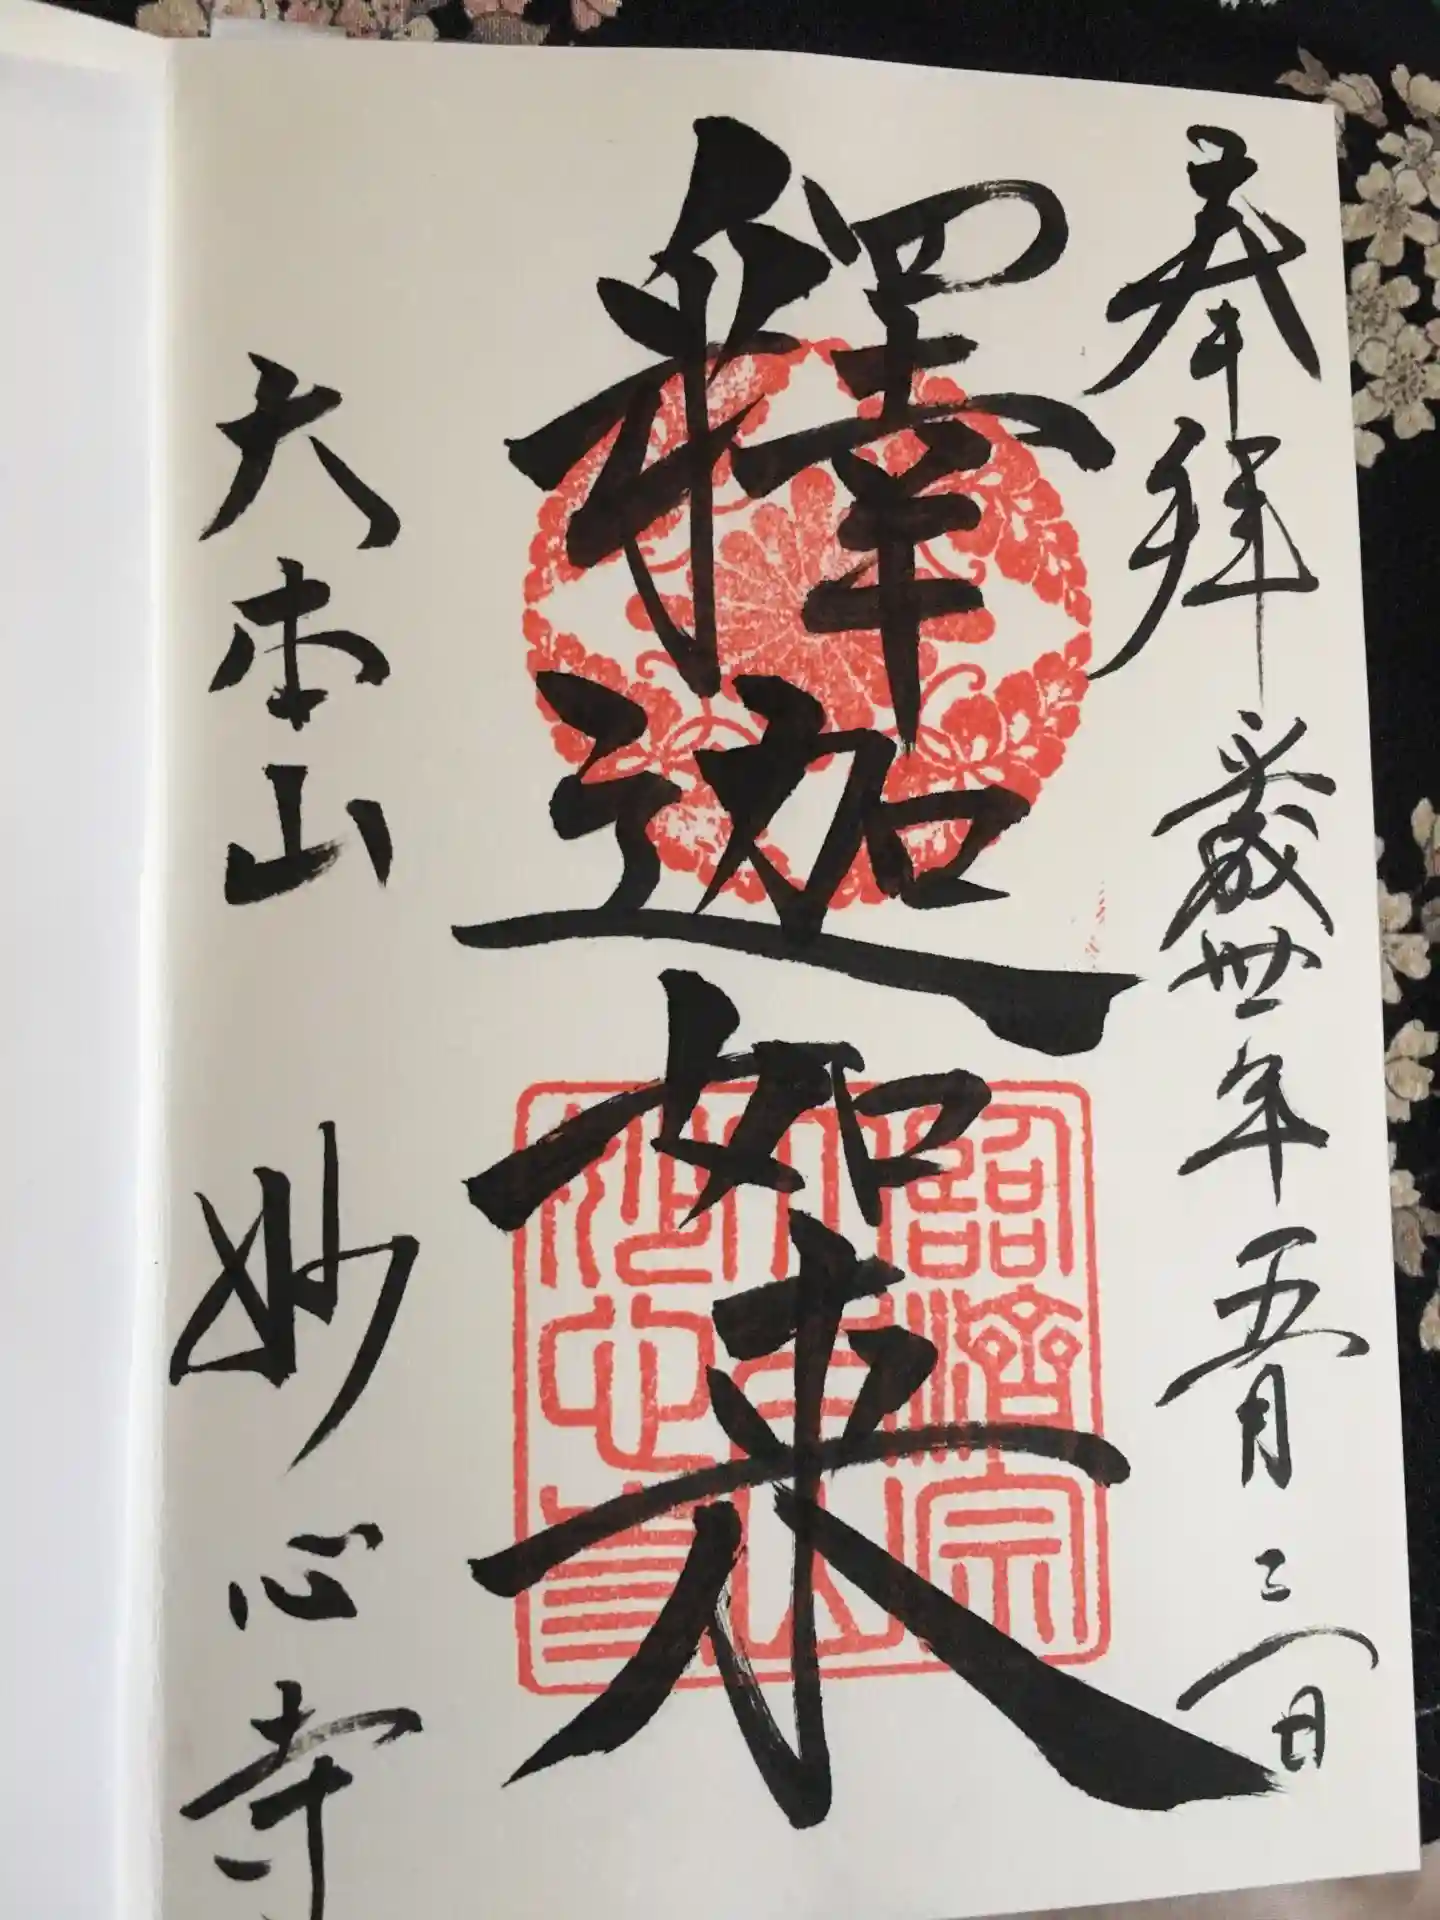 奉拝 平成卅年五月三日
釋迦如来
臨済宗
大本山
妙心寺
大本山 妙心寺